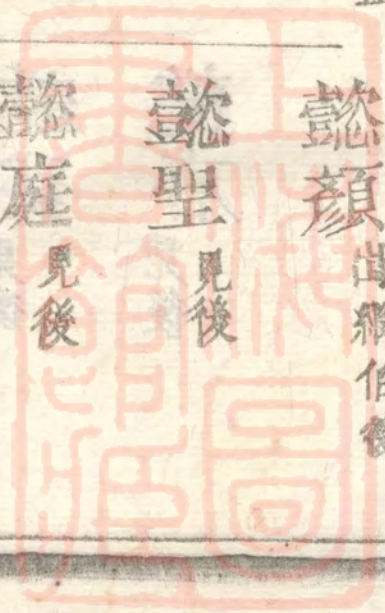 懿顏出繼伯後
懿聖見後
懿庭見後